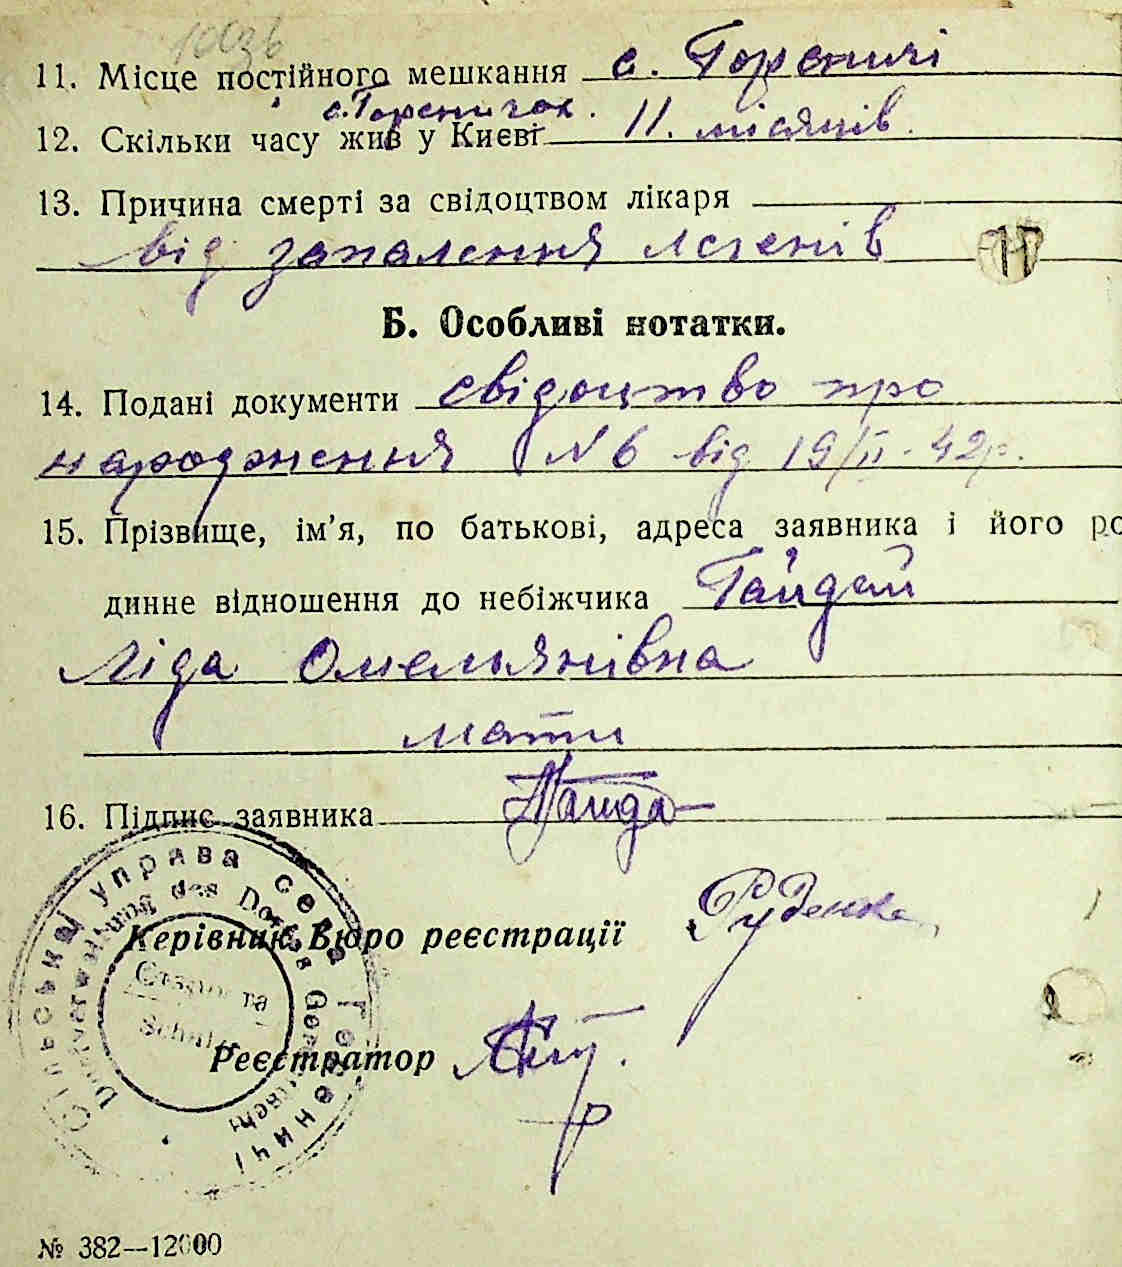 11. Місце постійного мешкання с. Гореничі
с. Гореничах.
12. Скільки часу жив у Києві 11. місяців.
13. Причина смерті за свідоцтвом лікаря
від запалення легенів
17
Б. Особливі нотатки.
14. Подані документи свідоцтво про
народження N 6 від 19/II - 42р.
15. Прізвище, ім’я, по батькові, адреса заявника і його ро
динне відношення до небіжчика Гайдай
Ліда Омельянівна
мати
16. Підпис заявника
Сільська управа села Гореничі
Dorfverwaltung des Dorfes
Староста
Керівник Бюро реєстрації Руденко
Реєстратор
№ 382—12000